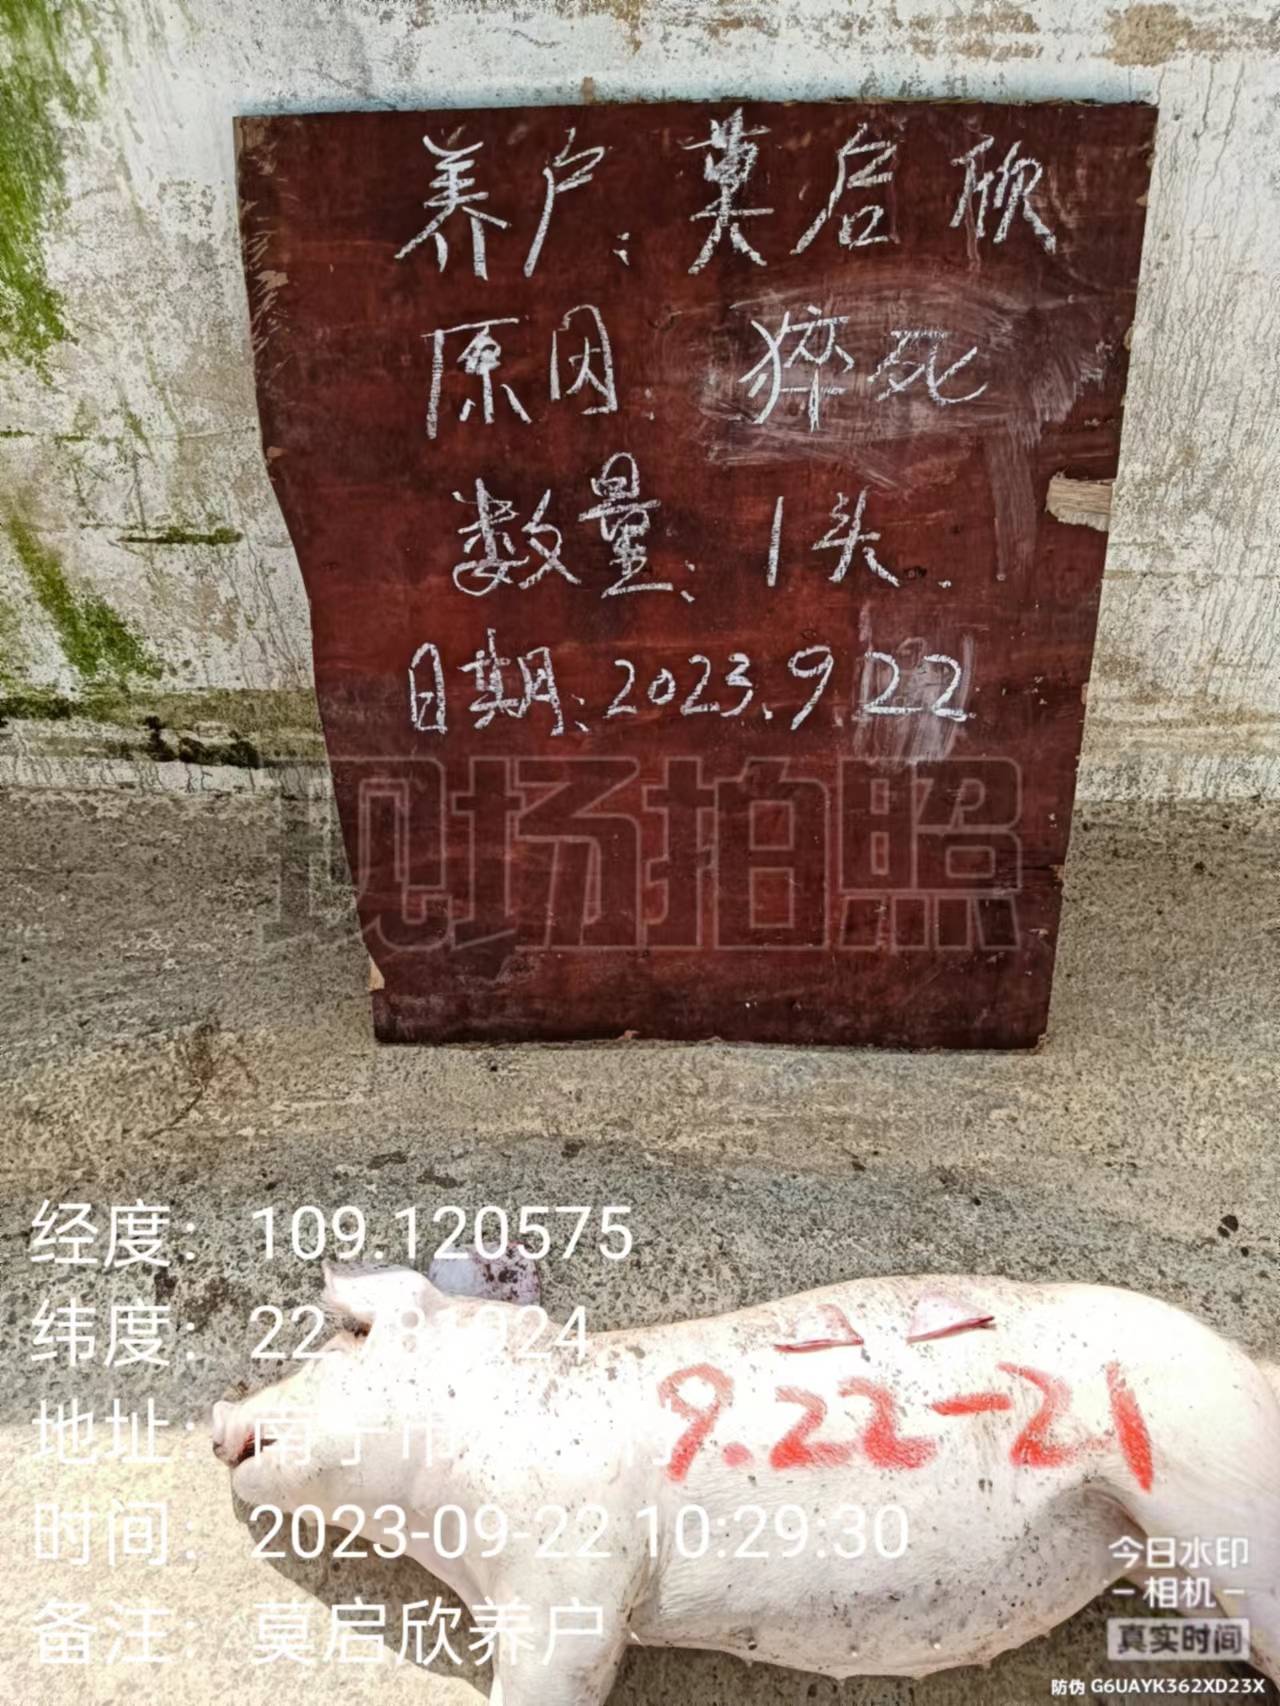 养户:莫启欣
原因:猝死
数量:1头.
日期:2023.9.22
现场拍照
经度: 109.120575
纬度: 22.781024
地址: 南宁市
9.22-21
时间: 2023-09-22 10:29:30
备注: 莫启欣养户
今日水印
-相机-
真实时间
防伪 G6UAYK362XD23X